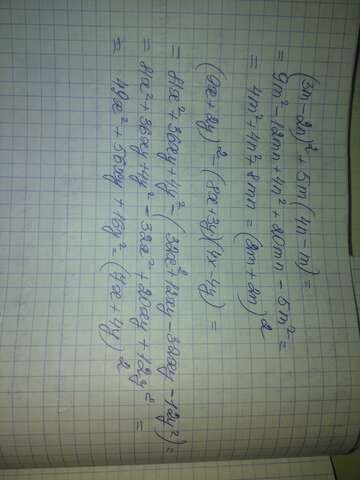 (3m-2n)² + 5m(4n-m) =
= 9m² - 12mn + 4n² + 20mn - 5m² =
= 4m² + 4n² + 8mn = (2m + 2n)²
(9x + 2y)² - (8x + 3y)(4x - 4y) =
= 81x² + 36xy + 4y² - (32x² + 12xy - 32xy - 12y²) =
= 81x² + 36xy + 4y² - 32x² + 20xy + 12y² =
= 49x² + 56xy + 16y² = (7x + 4y)²